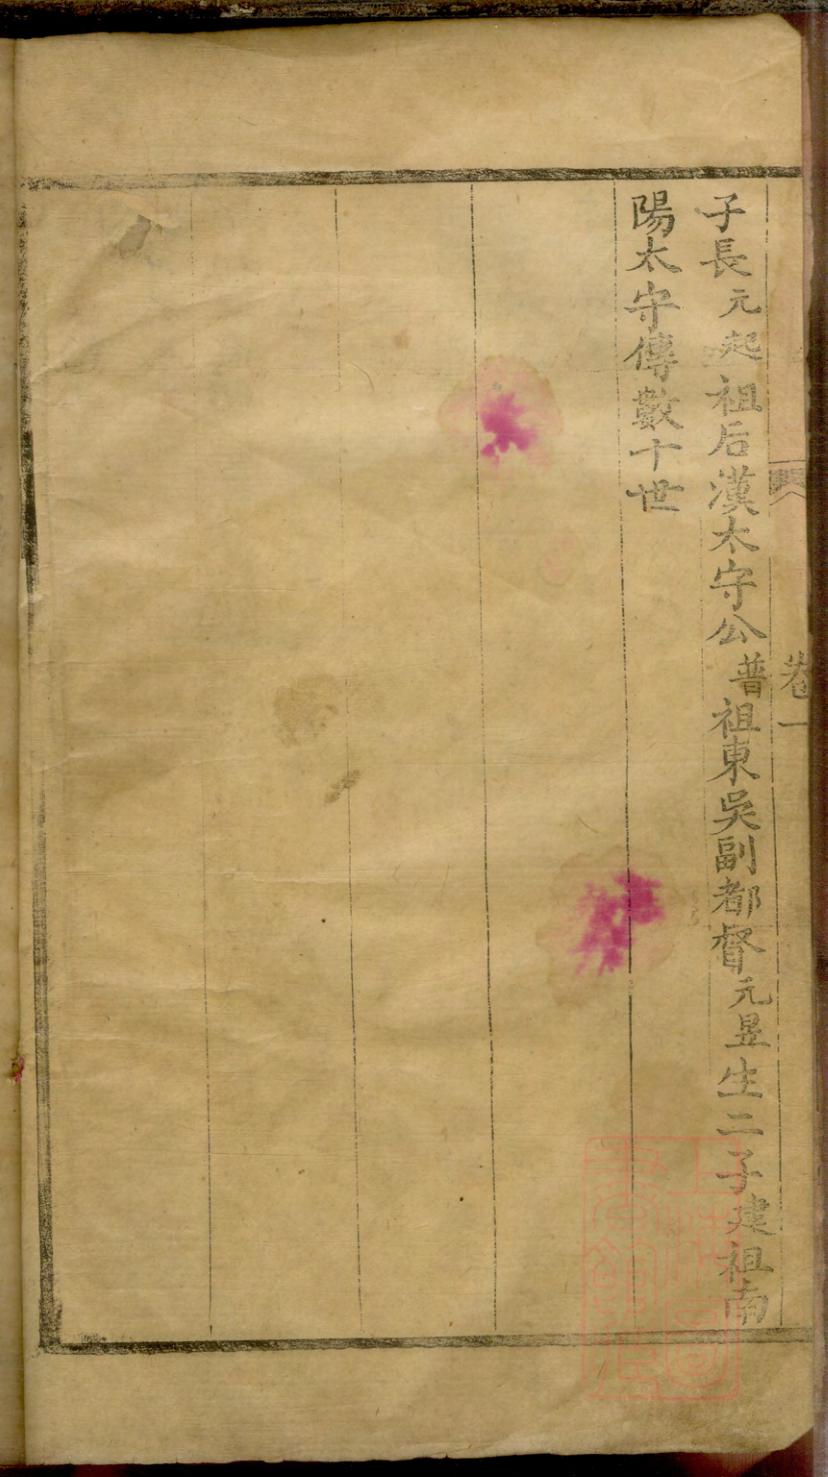 卷一
子長元起祖后漢太守公普祖東吳副都督元昱生二子建祖南
陽太守傳數十世